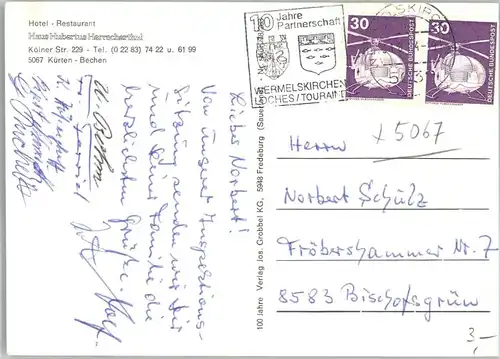 Hotel - Restaurant
Haus Hubertus Herrscherthal
Kölner Str. 229 - Tel. (0 22 83) 74 22 u. 61 99
5067 Kürten - Bechen
Lieber Norbert!
Von unserer Inspektions-
Sitzung senden wir Dir
und Deiner Familie die
herzlichsten Grüße.
100 Jahre Verlag Jos. Grobbel KG., 5948 Fredeburg
10 Jahre
Partnerschaft
WERMELSKIRCHEN
LOCHES/TOURAINE
30
DEUTSCHE BUNDESPOST
30
DEUTSCHE BUNDESPOST
x 5067
Herrn
Norbert Schülz
Fröbershammer Nr. 7
8583 Bischofsgrün
3,-